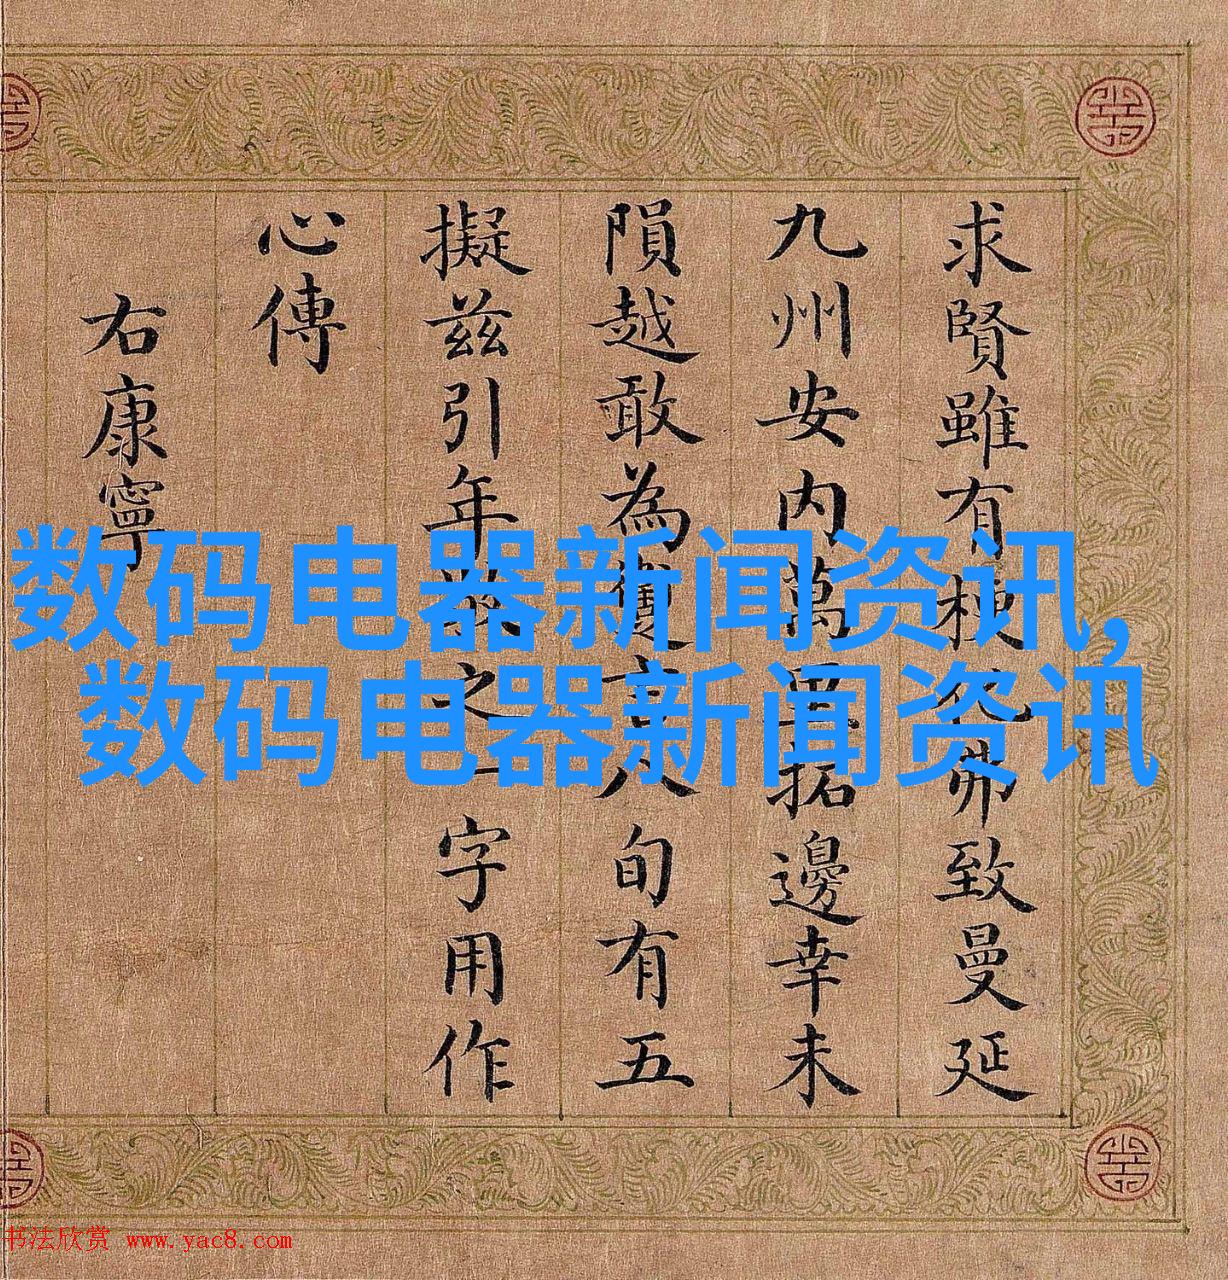 求賢雖有梗化弗致曼延
九州安内萬里拓邊幸未
隕越敢為言八旬有五
擬兹引年之一字用作
心傳
右康寧
数码电器新闻资讯,
数码电器新闻资讯
书法欣赏 www.yac8.com